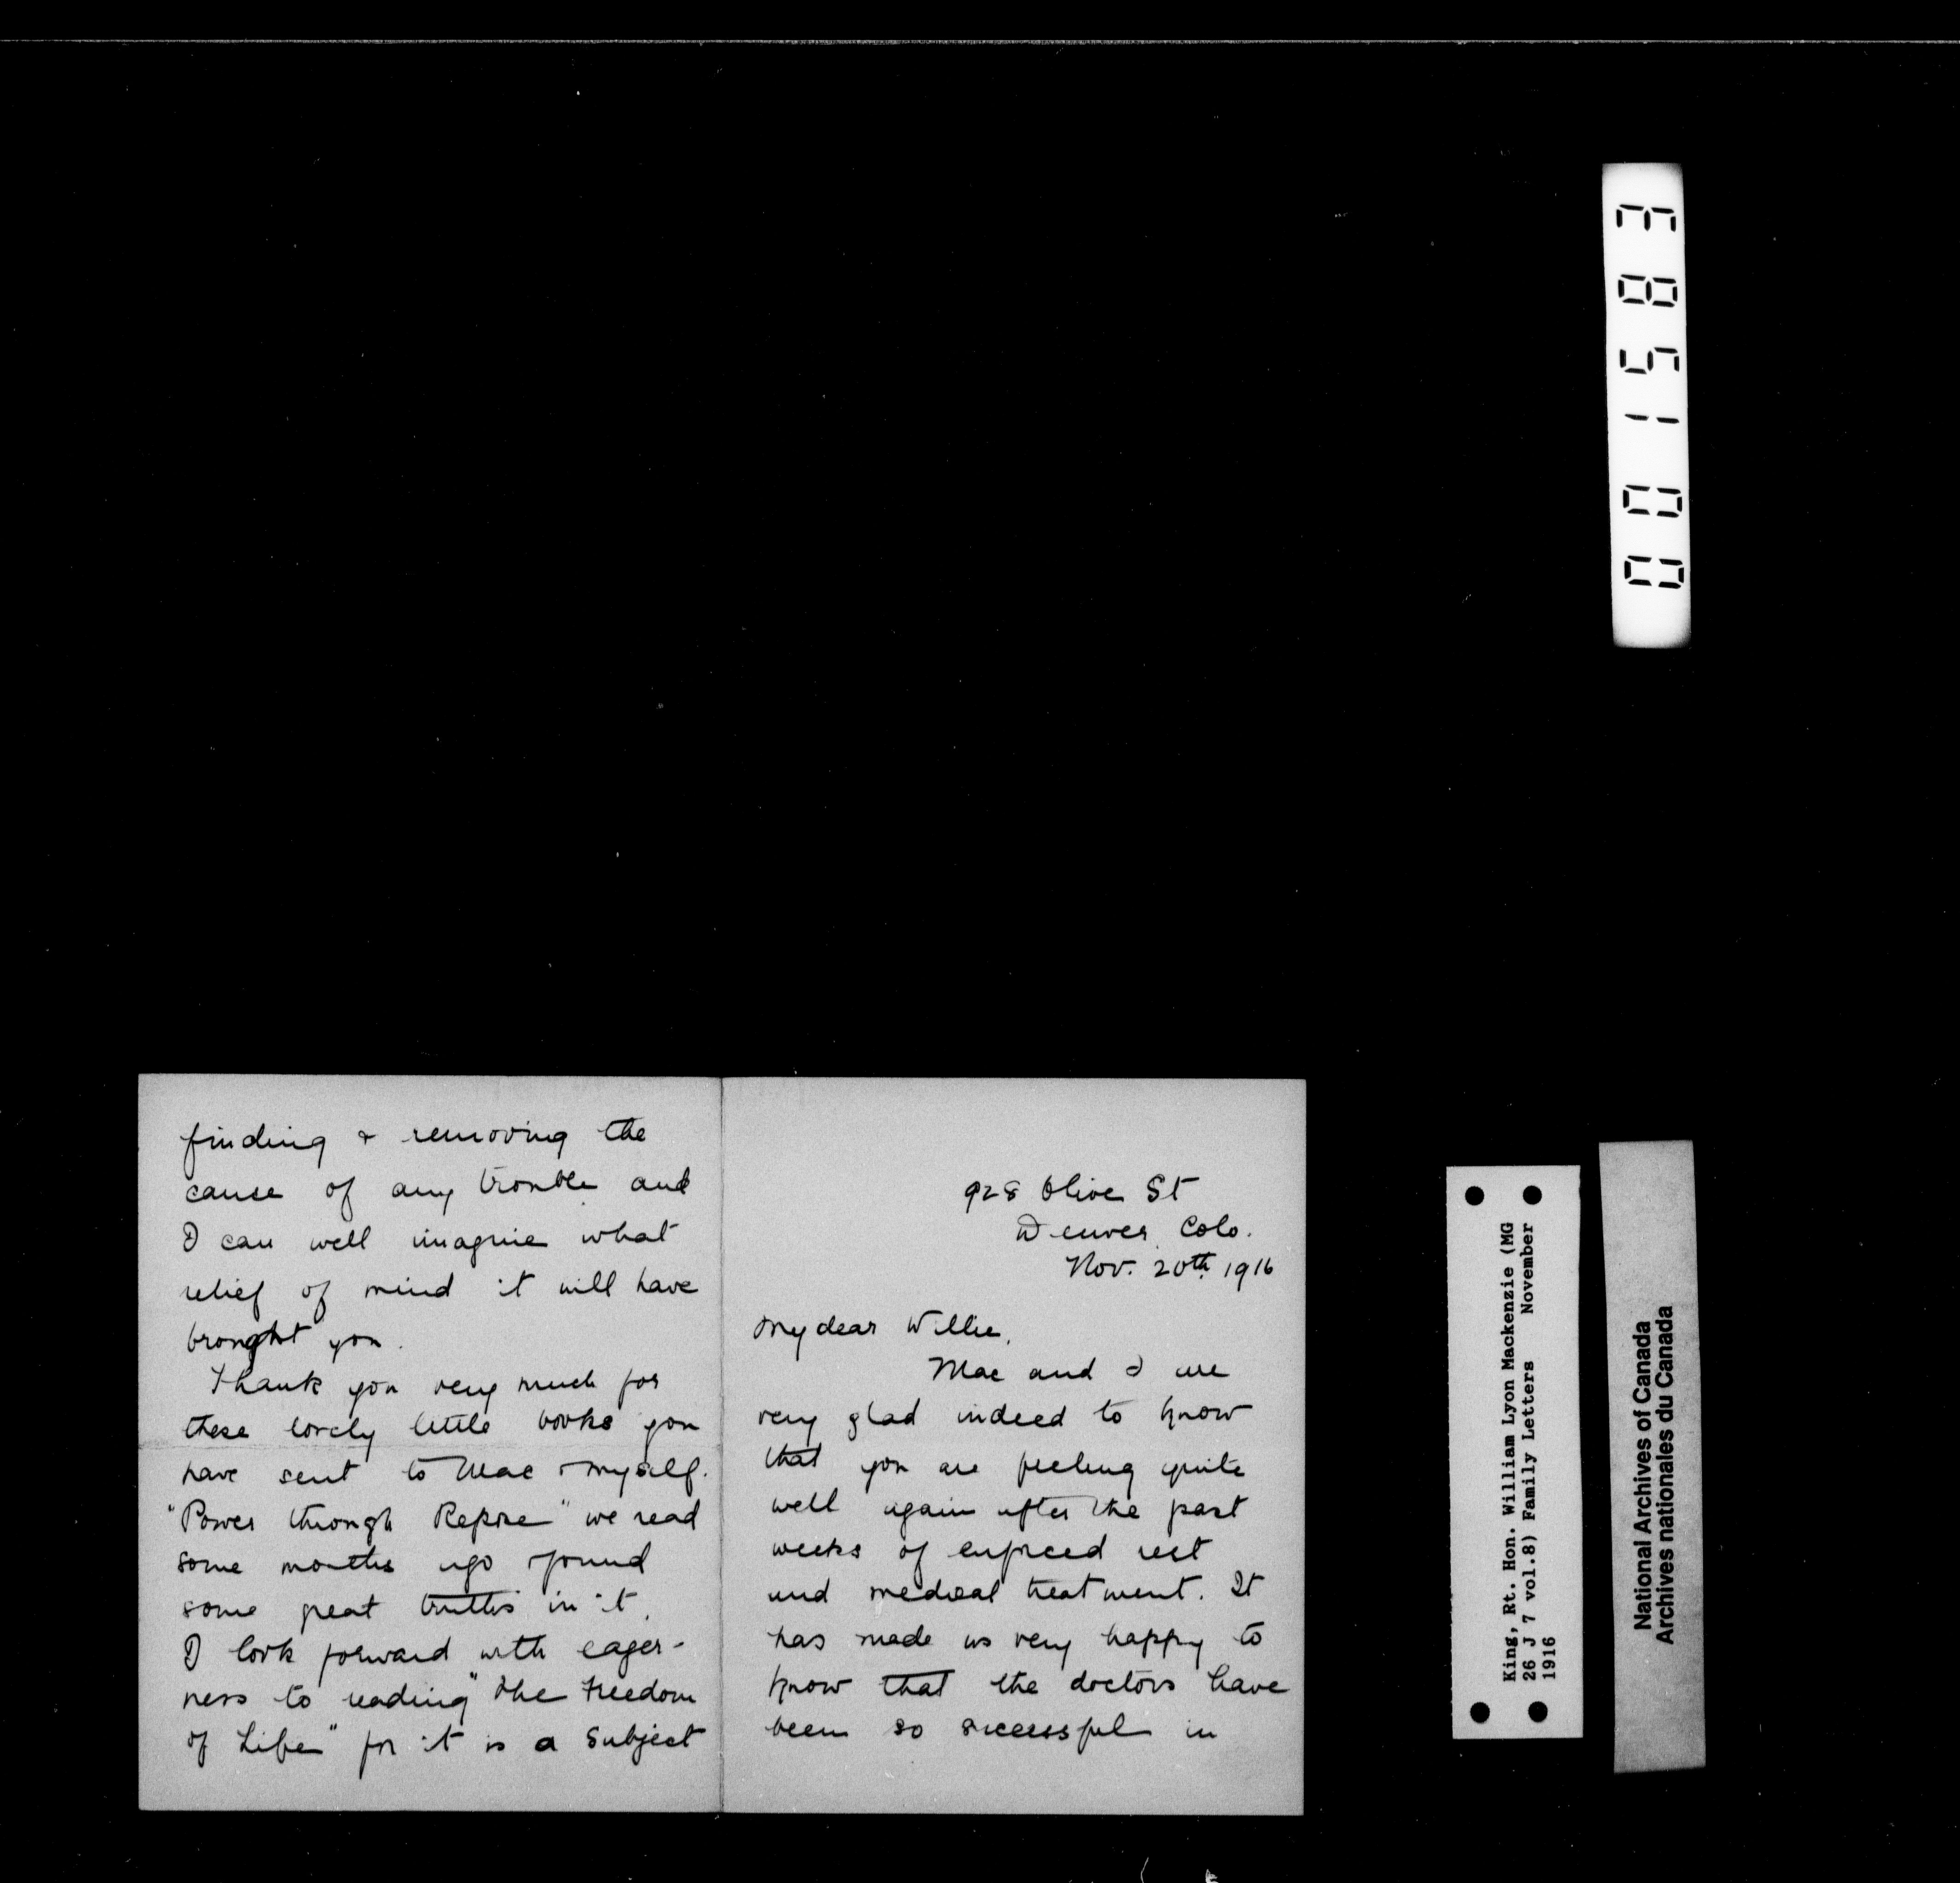 928 Olive St
Denver, Colo.
Nov. 20th 1916
My dear Willie,
Mac and I are
very glad indeed to know
that you are feeling quite
well again after the past
weeks of enforced rest
and medical treatment. It
has made us very happy to
know that the doctors have
been so successful in
finding & removing the
cause of any trouble and
I can well imagine what
relief of mind it will have
brought you.
Thank you very much for
these lovely little books you
have sent to Mac & myself.
"Power through Repose" we read
some months ago & found
some great truths in it.
I look forward with eager-
ness to reading "The Freedom
of Life" for it is a subject
001583
King, Rt. Hon. William Lyon Mackenzie (MG
26 J 7 vol.8) Family Letters November
1916
National Archives of Canada
Archives nationales du Canada